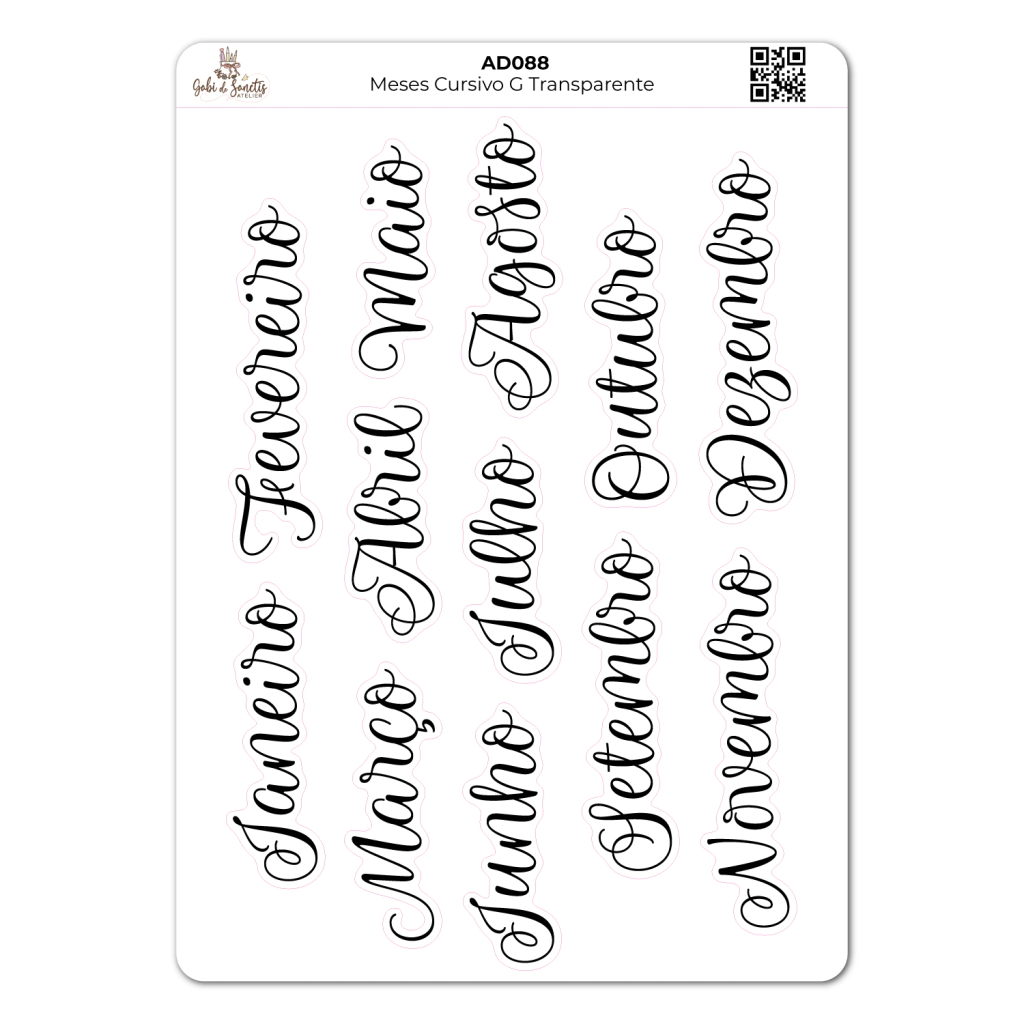 Gabi de Sanctis
ATELIER
AD088
Meses Cursivo G Transparente
Janeiro
Fevereiro
Março
Abril
Maio
Junho
Julho
Agosto
Setembro
Outubro
Novembro
Dezembro